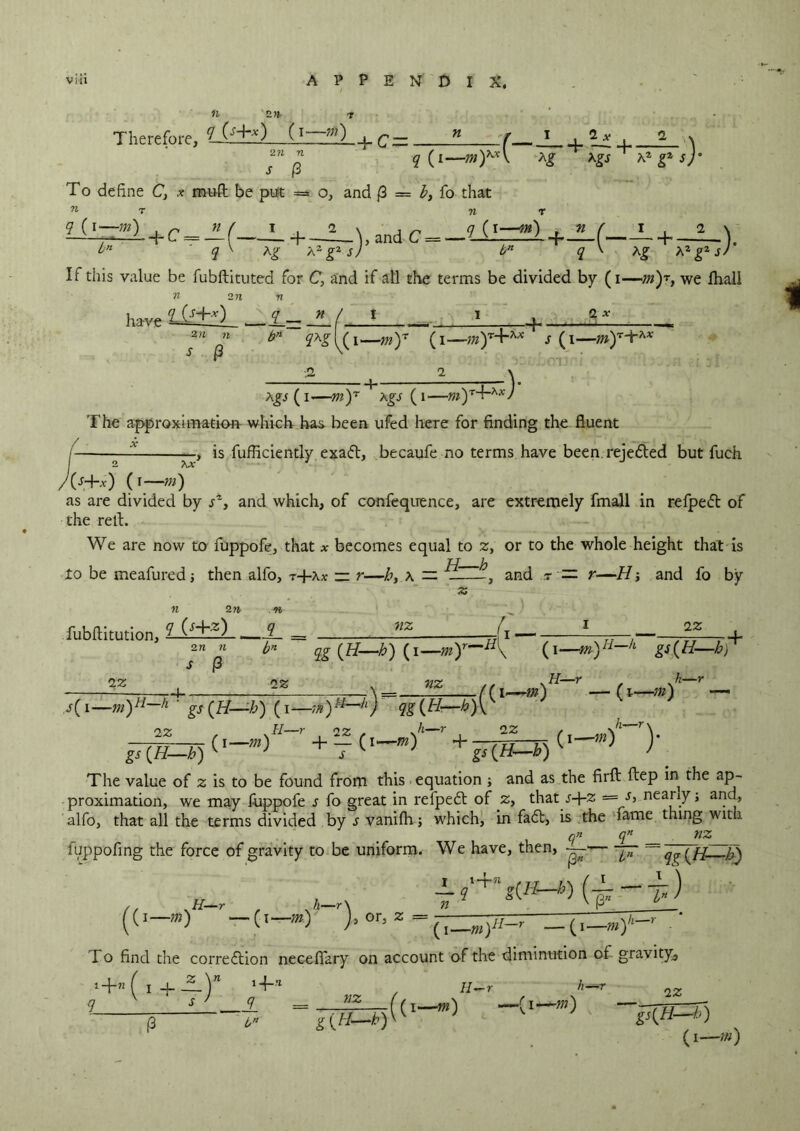 viii APPENDIX.
Therefore, q^n (s+x)^{2n} (1—m)^τ / s^{2n} β^n + C = n / q (1—m)^{λx} (— 1/λg + 2x/λgs + 2/λ² g² s).
To define C, x muſt be put = o, and β = b, ſo that
q^n (1—m)^τ / b^n + C = n/q (— 1/λg + 2/λ² g² s), and C = — q^n (1—m)^τ / b^n + n/q (— 1/λg + 2/λ² g² s).
If this value be ſubſtituted for C, and if all the terms be divided by (1—m)^τ, we ſhall
have q^n (s+x)^{2n} / s^{2n} β^n — q^n / b^n = n/qλg ( 1/(1—m)^τ — 1/(1—m)^{τ+λx} + 2x / s (1—m)^{τ+λx} —
2 / λgs (1—m)^τ + 2 / λgs (1—m)^{τ+λx} ).
The approximation which has been uſed here for finding the fluent
∫ ẋ / (s+x)^2 (1—m)^{λx}, is ſufficiently exact, becauſe no terms have been rejected but ſuch
as are divided by s², and which, of conſequence, are extremely ſmall in reſpect of
the reſt.
We are now to ſuppoſe, that x becomes equal to z, or to the whole height that is
to be meaſured; then alſo, τ+λx = r—h, λ = H—h / z, and τ = r—H; and ſo by
ſubſtitution, q^n (s+z)^{2n} / s^{2n} β^n — q^n / b^n = nz / qg (H—h) (1—m)^{r—H} (1 — 1/(1—m)^{H—h} — 2z / gs(H—h) +
2z / s(1—m)^{H—h} + 2z / gs (H—h) (1—m)^{H—h} ) = nz / qg (H—h) ((1—m)^{H—r} — (1—m)^{h—r} —
2z / gs (H—h) (1—m)^{H—r} + 2z/s (1—m)^{h—r} + 2z / gs (H—h) (1—m)^{h—r} ).
The value of z is to be found from this equation; and as the firſt ſtep in the ap-
proximation, we may ſuppoſe s ſo great in reſpect of z, that s+z = s, nearly; and,
alſo, that all the terms divided by s vaniſh; which, in fact, is the ſame thing with
ſuppoſing the force of gravity to be uniform. We have, then, q^n / β^n — q^n / b^n = nz / qg (H—h)
((1—m)^{H—r} — (1—m)^{h—r}), or, z = 1/n q^{1+n} g(H—h) (1/β^n — 1/b^n) / (1—m)^{H—r} — (1—m)^{h—r}.
To find the correction neceſſary on account of the diminution of gravity,
q^{1+n} (1 + z/s)^n / β — q^{1+n} / b^n = nz / g (H—h) ((1—m)^{H—r} — (1—m)^{h—r} — 2z / gs(H—h)
(1—m)